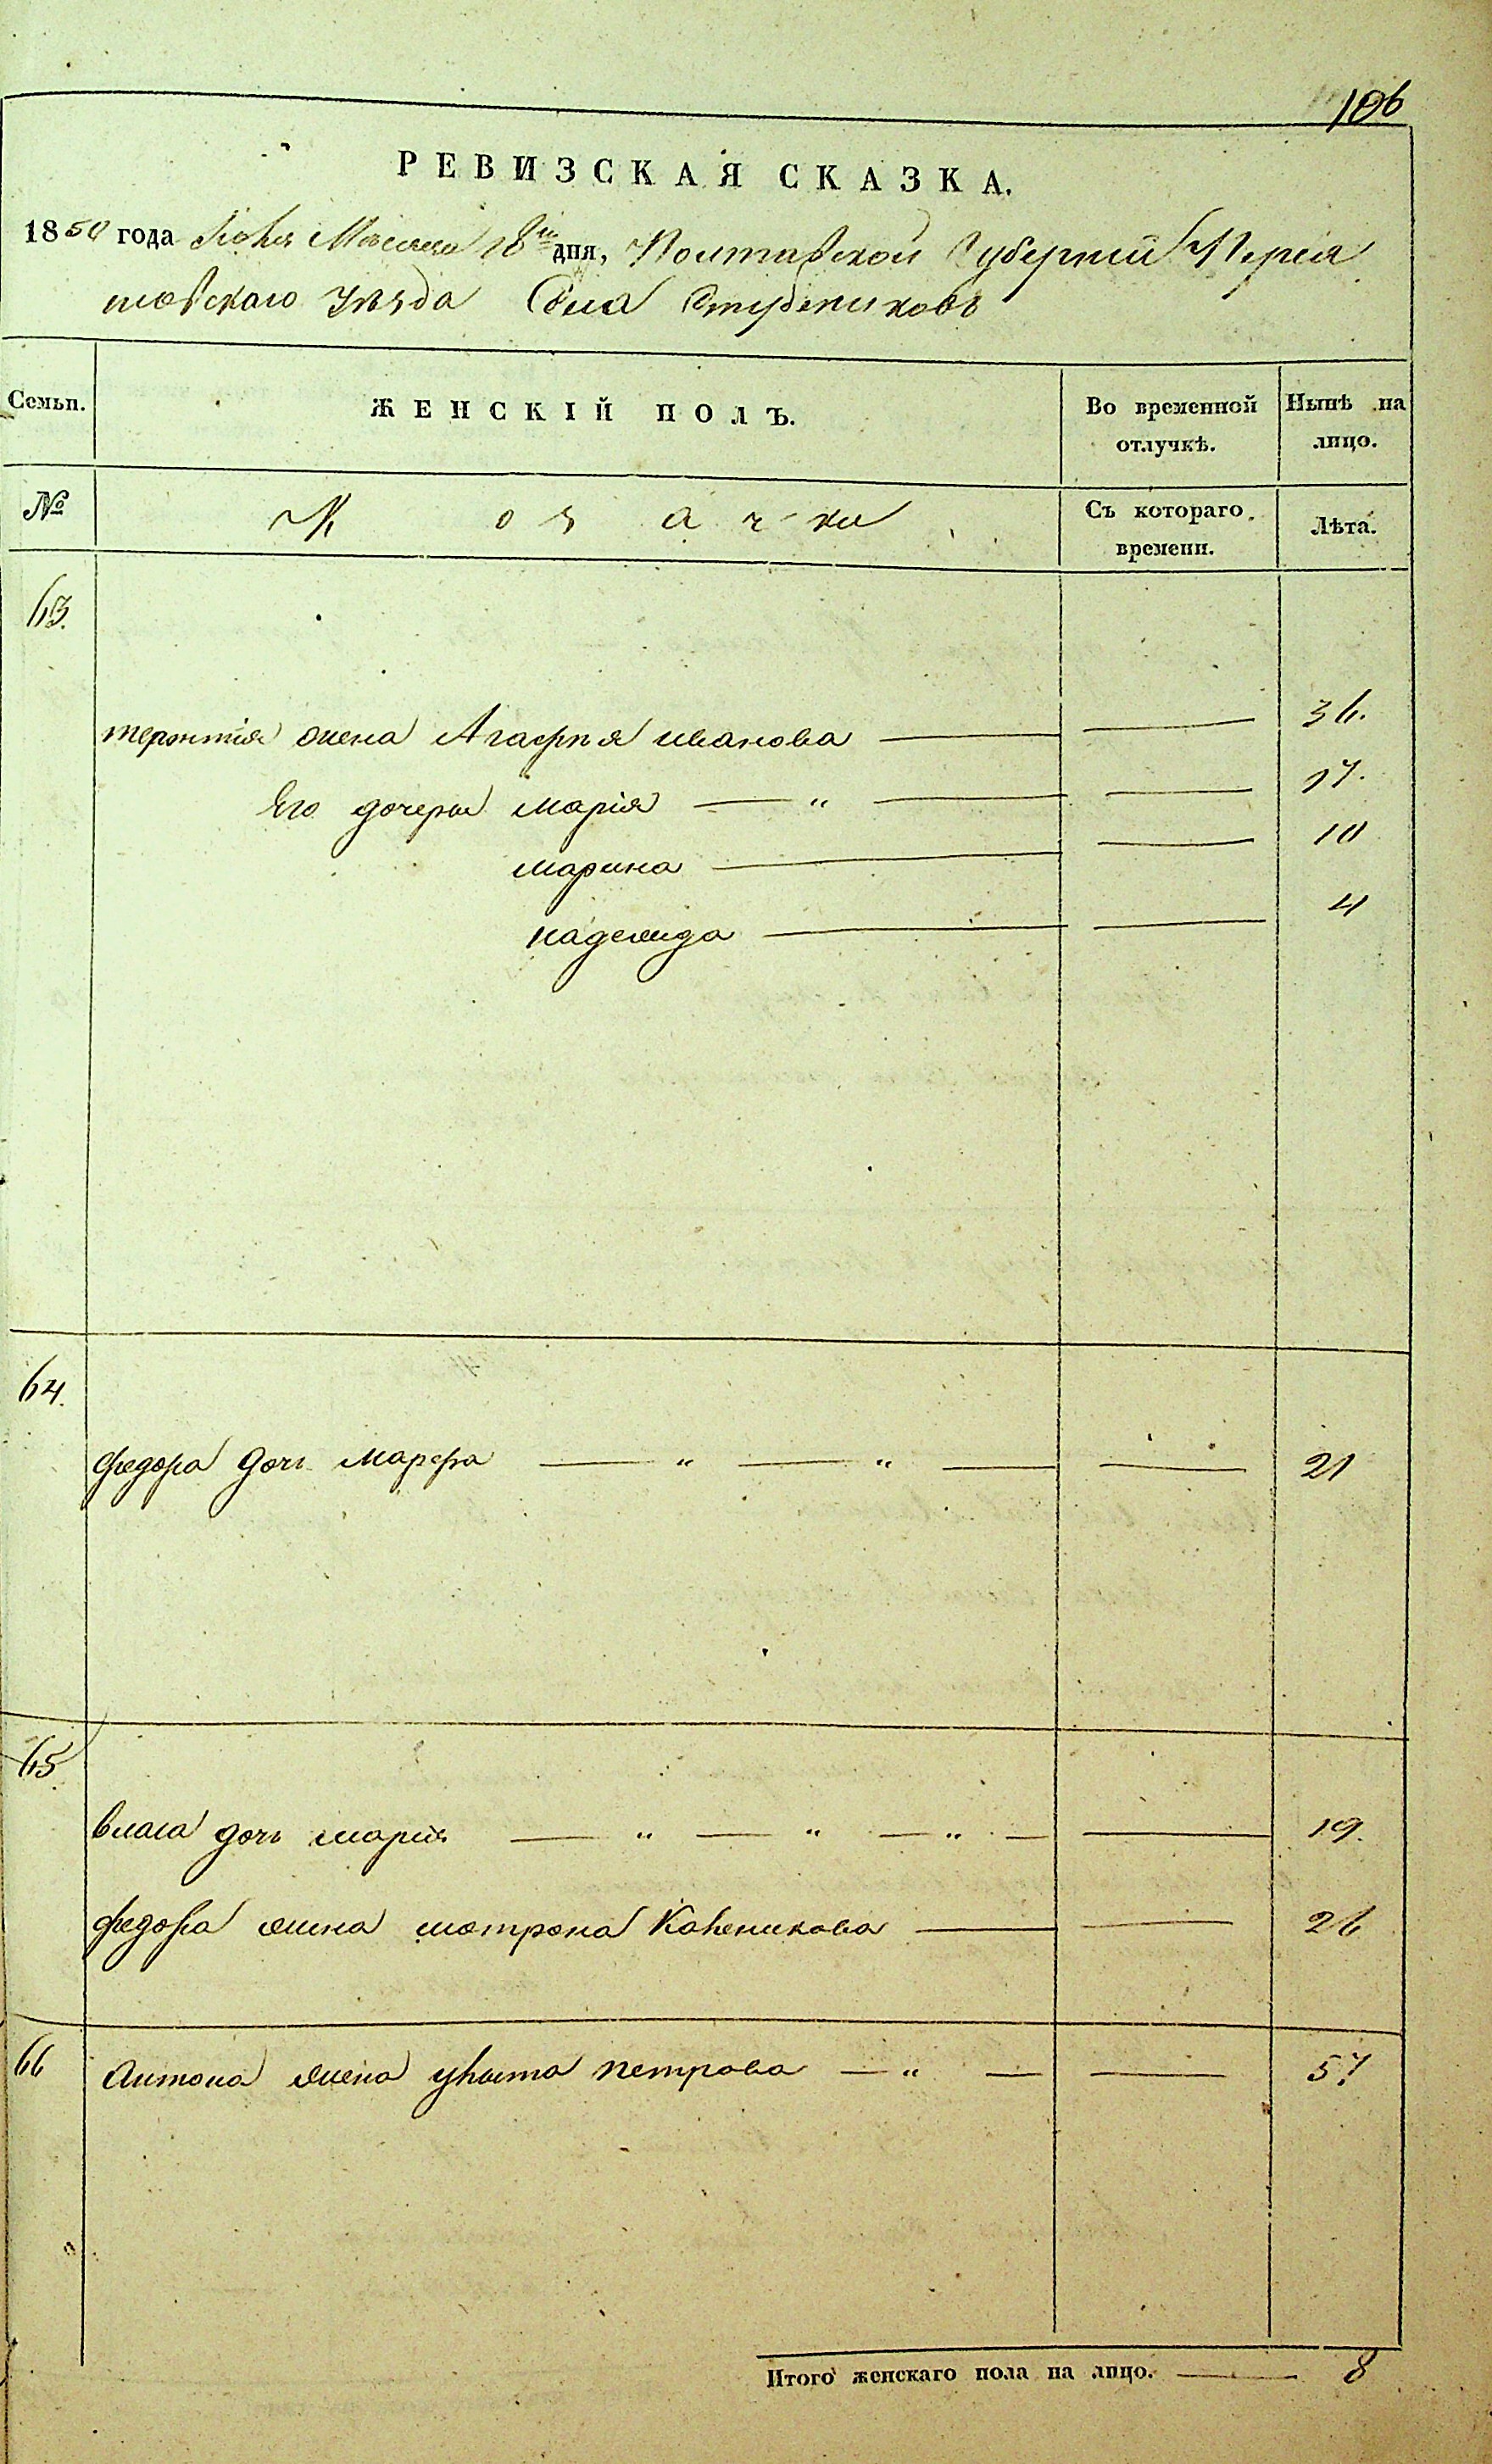 106
РЕВИЗСКАЯ СКАЗКА.
1850 года Июня Месяца 18го дня, Полтавской Губернии Перея
славскаго Уѣзда Села Студениковъ
Семьи. ЖЕНСКІЙ ПОЛЪ. Во временной отлучкѣ. Нынѣ на лицо.
№ Козачки Съ котораго времени. Лѣта.
63.
терентія жена Агафия иванова 36.
Его дочери марія " 17.
марина 10
надежда 4
64.
федора дочь марфа " " 21
65
власа дочь марія " " " 19.
федора жена мотрона 26
66 антона жена петрова " 57
Итого женскаго пола на лицо. 8